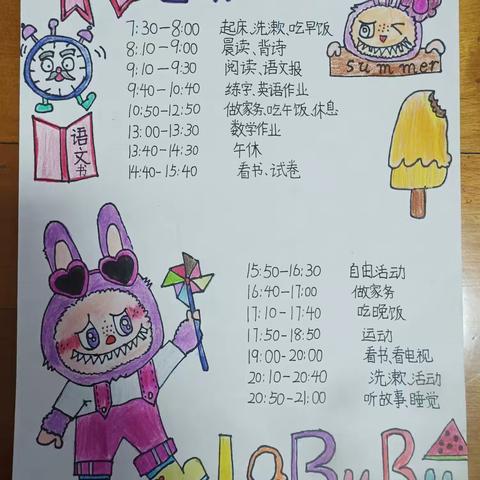 7:30-8:00 起床、洗漱、吃早饭
8:10-9:00 晨读、背诗
9:10-9:30 阅读、语文报
9:40-10:40 练字、英语作业
10:50-12:50 做家务、吃午饭、休息
13:00-13:30 数学作业
13:40-14:30 午休
14:40-15:40 看书、试卷
summer
语文书
15:50-16:30 自由活动
16:40-17:00 做家务
17:10-17:40 吃晚饭
17:50-18:50 运动
19:00-20:00 看书、看电视
20:10-20:40 洗漱、活动
20:50-21:00 听故事、睡觉
laBuBu